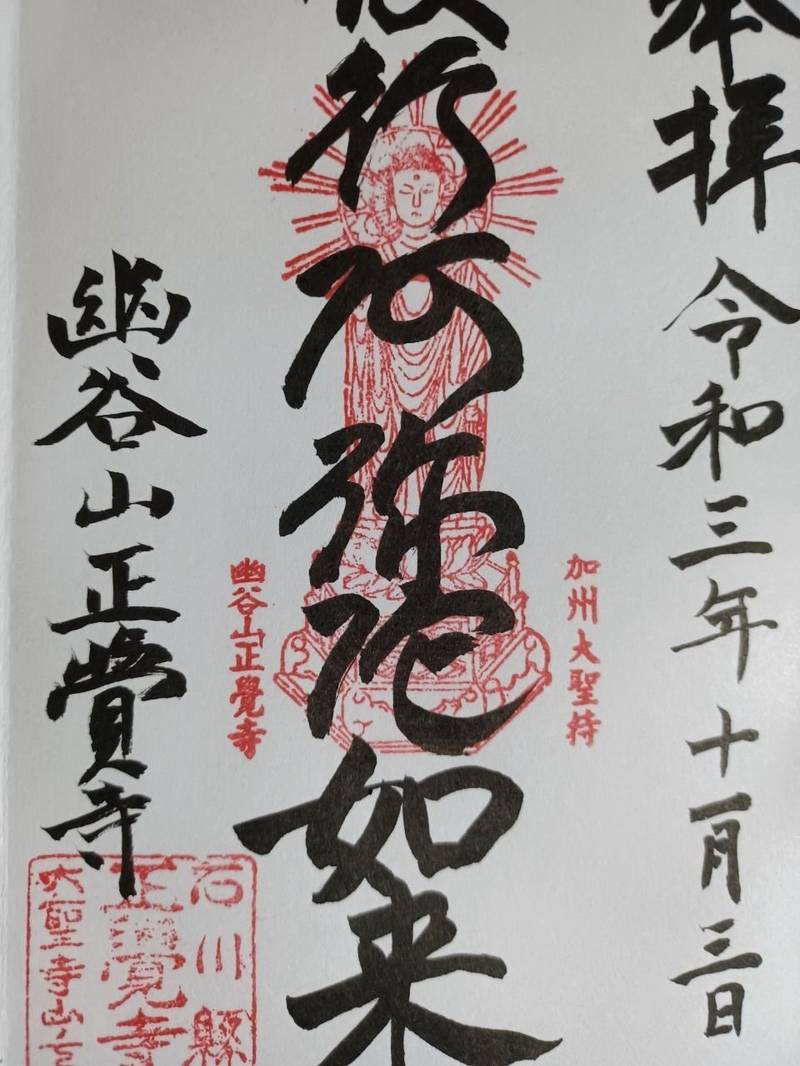 奉拝 令和三年十一月三日
加州大聖持
行阿弥陀如来
幽谷山正覺寺
幽谷山正覺寺
石川縣
正覺寺
大聖寺山